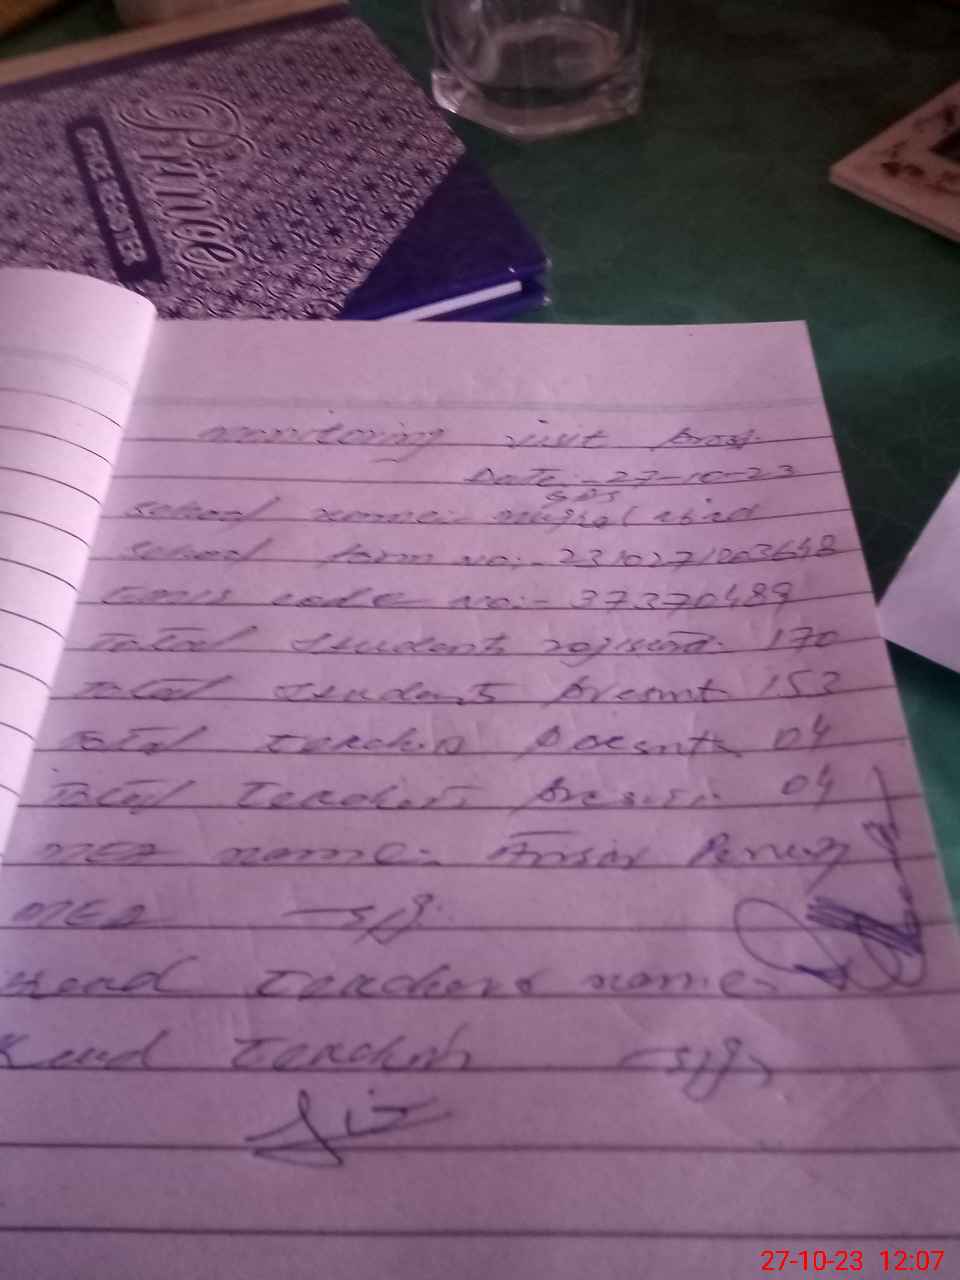 Prince
SINCE REGISTER
monitoring visit
Date:-27-10-23
GPS
School name:-
School form no:- 2310271003648
Emis code no:- 37370489
Total students 170
Total students Present 153
Total teachers 04
Total teachers Present 04
MEA name:- Ansar
MEA sig.
Head teachers name:-
Head teacher sig
27-10-23 12:07